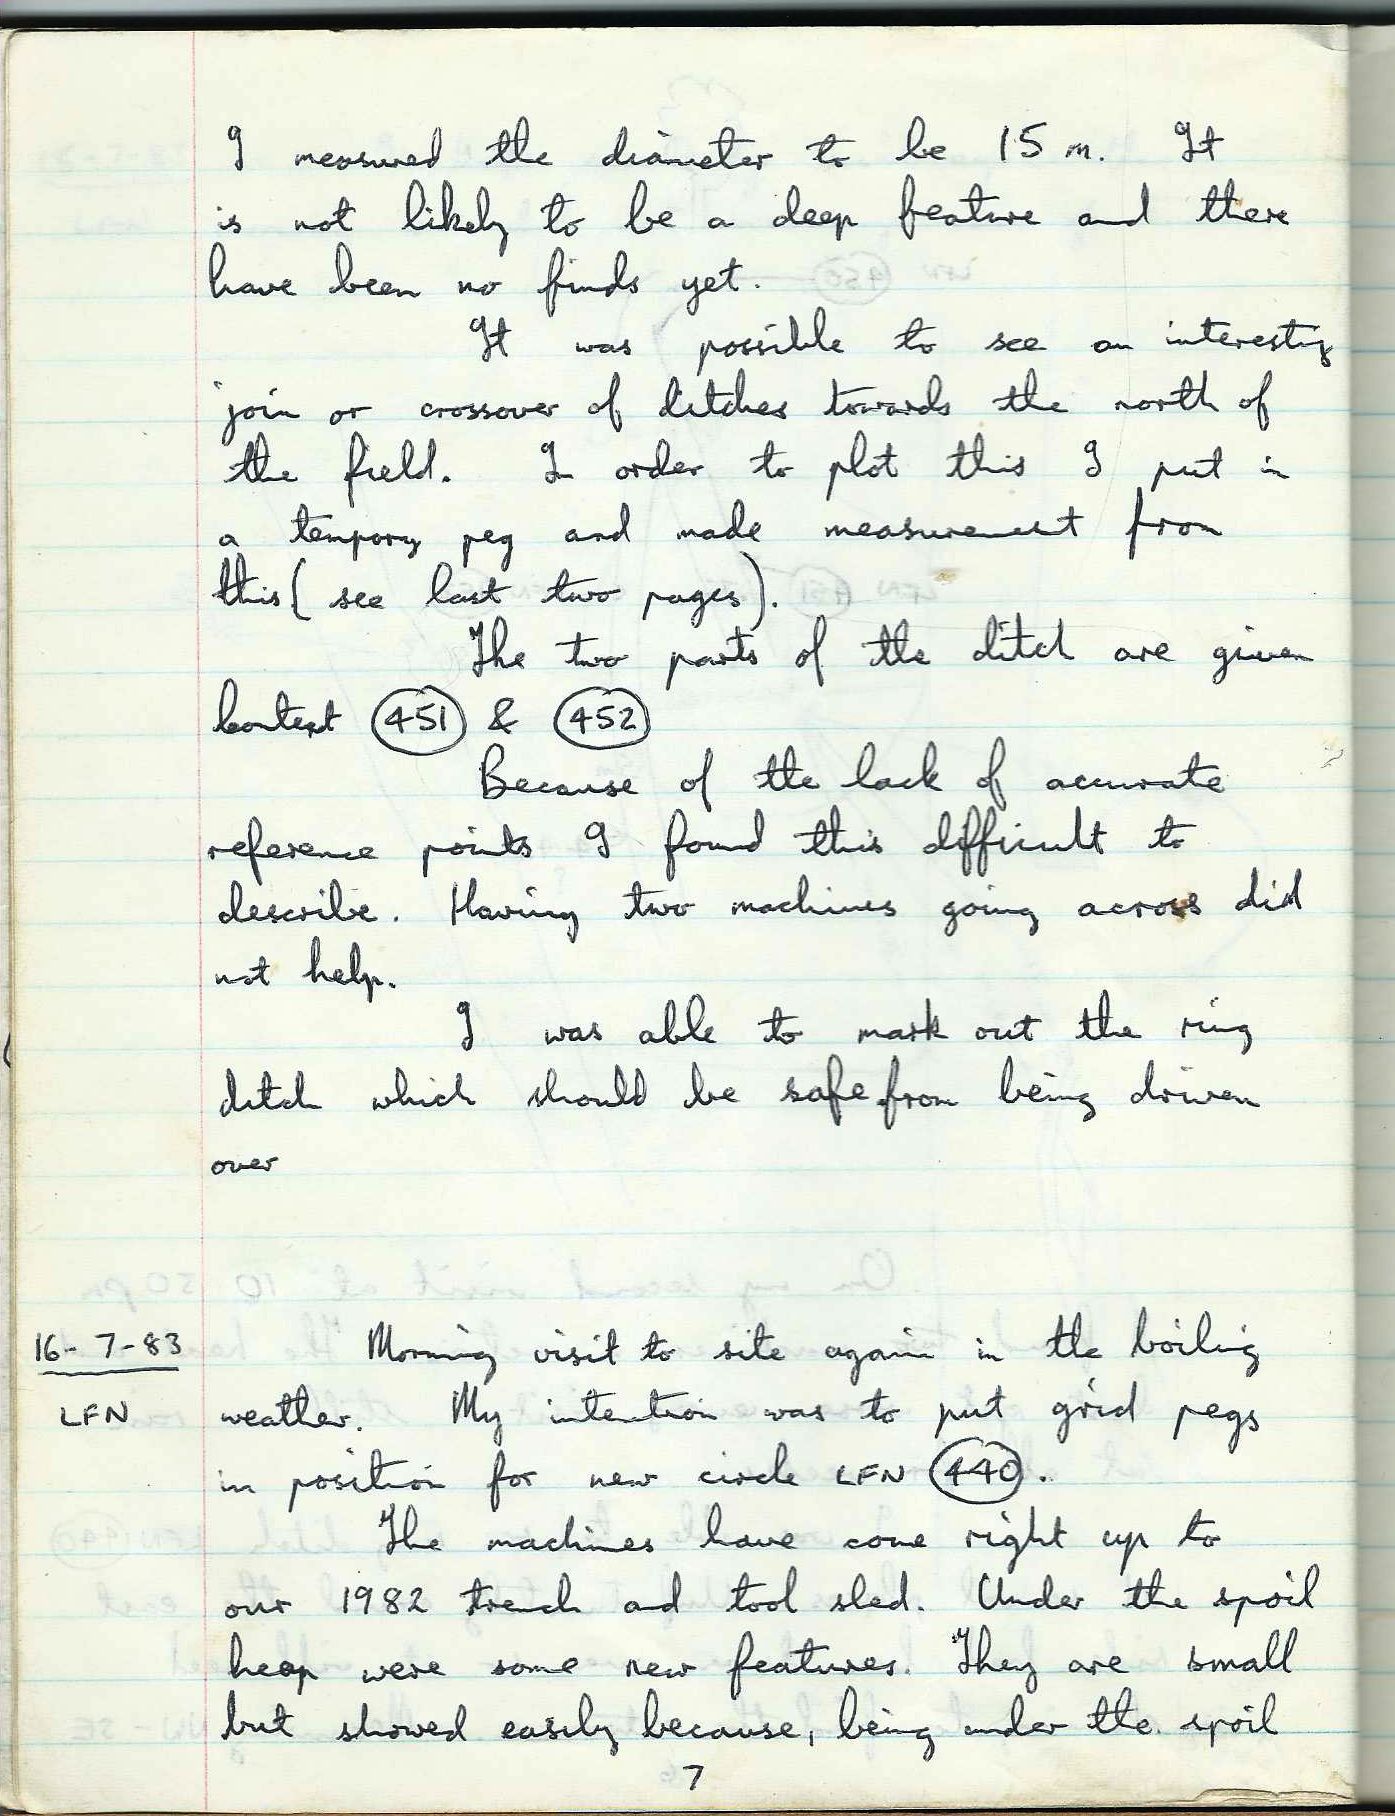 I measured the diameter to be 15 m. It
is not likely to be a deep feature and there
have been no finds yet.
It was possible to see an interesting
join or crossover of ditches towards the north of
the field. In order to plot this I put in
a tempory peg and made measurement from
this (see last two pages).
The two parts of the ditch are given
context 451 & 452
Because of the lack of accurate
reference points I found this difficult to
describe. Having two machines going across did
not help.
I was able to mark out the ring
ditch which should be safe from being driven
over
16-7-83 Morning visit to site again in the boiling
LFN weather. My intention was to put grid pegs
in position for new circle LFN 440.
The machines have come right up to
our 1982 trench and tool shed. Under the spoil
heap were some new features. They are small
but showed easily because, being under the spoil
7